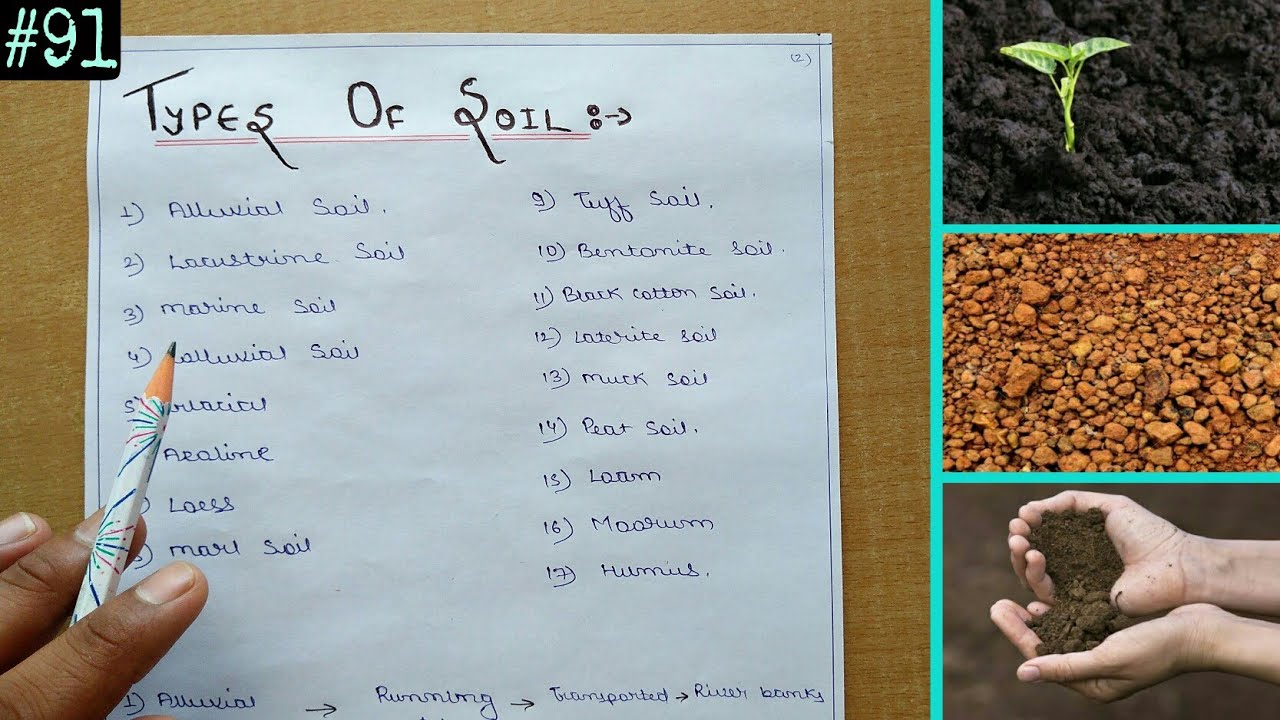 #91
(2)
TYPES OF SOIL :→
1) Alluvial Soil.
2) Lacustrine Soil
3) Marine Soil
4) alluvial Soil
5) lacial
Aeoline
Loess
Marl Soil
9) Tuff Soil.
10) Bentonite Soil.
11) Black cotton Soil.
12) Laterite Soil
13) Muck Soil
14) Peat Soil.
15) Loam
16) Moorum
17) Humus.
1) Alluvial → Running → Transported → River banks